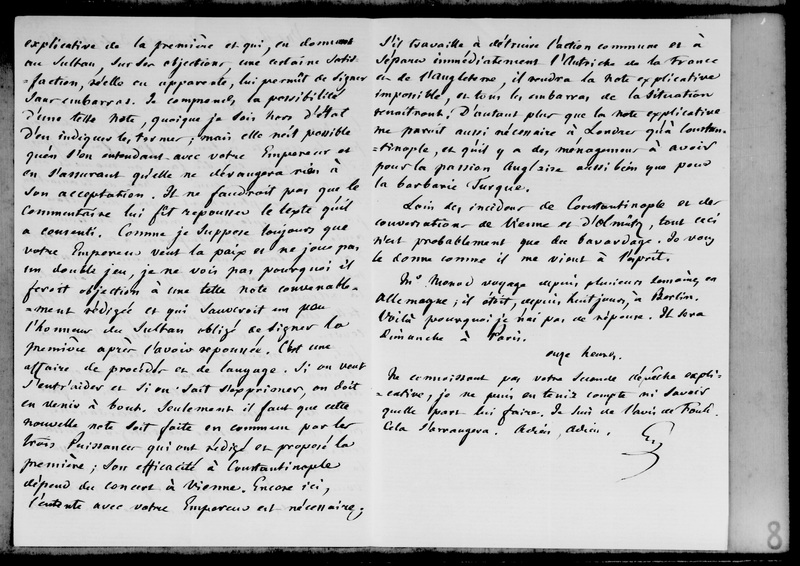 explicative de la première et qui, en donnant
au Sultan, sur ses objections, une certaine satis-
-faction, réelle ou apparente, lui permît de signer
sans embarras. Je comprends la possibilité
d'une telle note, quoique je sois hors d'état
d'en indiquer les termes ; mais elle n'est possible
qu'en s'en entendant avec votre Empereur et
en s'assurant qu'elle ne dérangera rien à
son acceptation. Il ne faudrait pas que le
commentaire lui fît repousser le texte qu'il
a consenti. Comme je suppose toujours que
votre Empereur veut la paix et ne joue pas
un double jeu, je ne vois pas pourquoi il
feroit objection à une telle note convenable-
-ment rédigée et qui sauveroit un peu
l'honneur du Sultan obligé de signer la
première après l'avoir repoussée. C'est une
affaire de procédés et de langage. Si on veut
s'entr'aider et si on sait s'approcher, on doit
en venir à bout. Seulement il faut que cette
nouvelle note soit faite en commun par les
trois Puissances qui ont rédigé et proposé la
première ; son efficacité à Constantinople
dépend du concert à Vienne. Encore ici,
l'entente avec votre Empereur est nécessaire ;
s'il travaille à détruire l'action commune et à
séparer immédiatement l'Autriche de la France
et de l'Angleterre, il rendra la note explicative
impossible, et tous les embarras de la situation
renaîtront. D'autant plus que la note explicative
me paraît aussi nécessaire à Londres qu'à Constan-
-tinople, et qu'il y a des ménagemens à avoir
pour la passion Anglaise aussi bien que pour
la barbarie Turque.
Loin des incidens de Constantinople et des
conversations de Vienne et d'Olmütz, tout ceci
n'est probablement que du bavardage. Je vous
le donne comme il me vient à l'esprit.
Mr Monod voyage depuis plusieurs semaines en
Allemagne ; il étoit, depuis huit jours, à Berlin.
Voilà pourquoi je n'ai pas de réponse. Il sera
Dimanche à Paris.
onze heures.
Ne connoissant pas votre seconde dépêche expli-
-cative, je ne puis en tenir compte ni savoir
quelle part lui faire. Je suis de l'avis de
Cela s'arrangera. Adieu, Adieu.
8